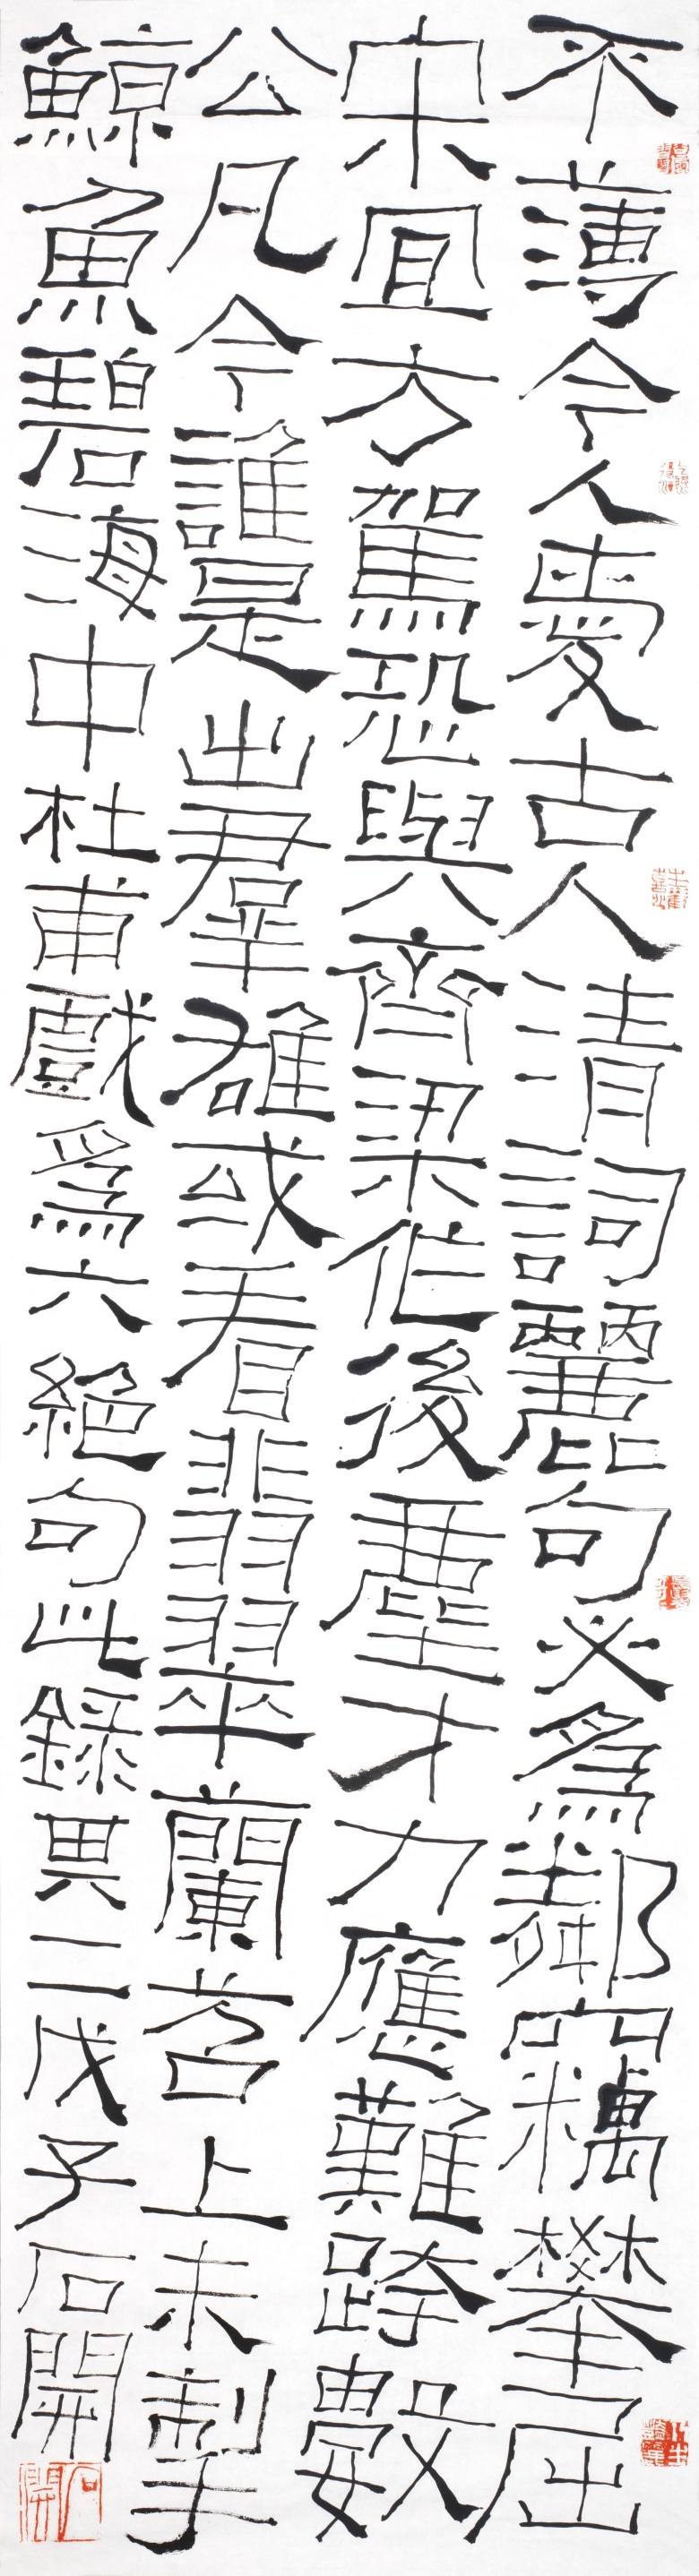 不薄今人愛古人清詞麗句必為鄰竊攀屈
宋宜方駕恐與齊梁作後塵才力應難跨數
公凡今誰是出群雄或看翡翠蘭苕上未掣
鯨魚碧海中杜甫戲為六絕句此錄其二戊子石開
石開